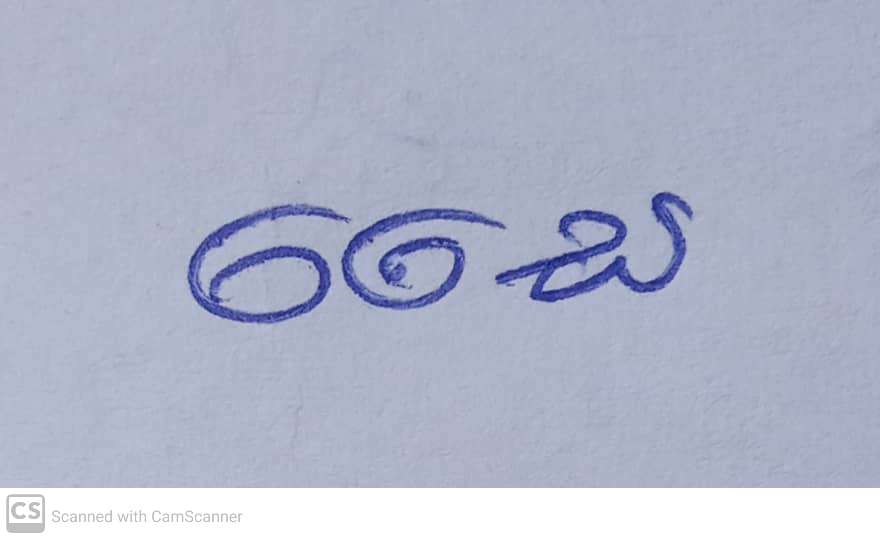 സൈ
Scanned with CamScanner